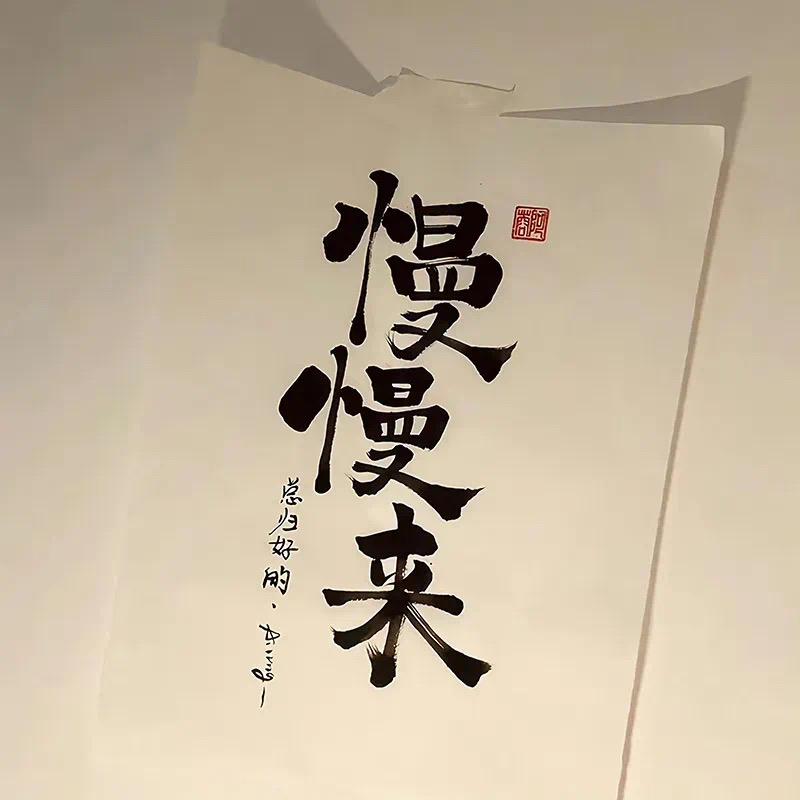 慢慢来
总归好的.